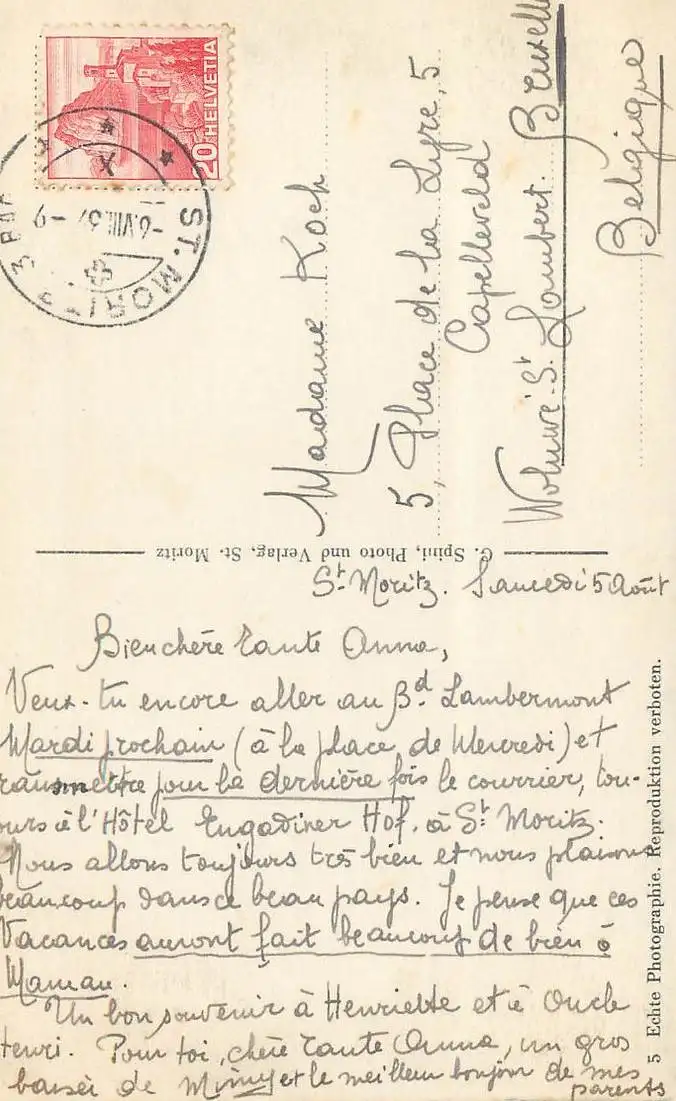 HELVETIA
20
ST. MORITZ
-6.VIII.37-9
Madame Koch
5, Place de la Lyre, 5
Capelleveld
Woluwé-St Lambert. Bruxelle
Belgique
G. Spini, Photo und Verlag, St. Moritz
St Moritz. Samedi 5 Août
Bien chère tante Anna,
Veux-tu encore aller au Bd. Lambermont
Mardi prochain (à la place de Mercredi) et
ransmettre pour la dernière fois le courrier, tou-
ours à l'Hôtel Engadiner Hof. à St Moritz.
Nous allons toujours très bien et nous plaisons
beaucoup dans ce beau pays. Je pense que ces
Vacances auront fait beaucoup de bien à
Maman.
Un bon souvenir à Henriette et à Oncle
Henri. Pour toi, chère tante Anna, un gros
baiser de Mimy et le meilleur bonjour de mes
parents
5 Echte Photographie. Reproduktion verboten.